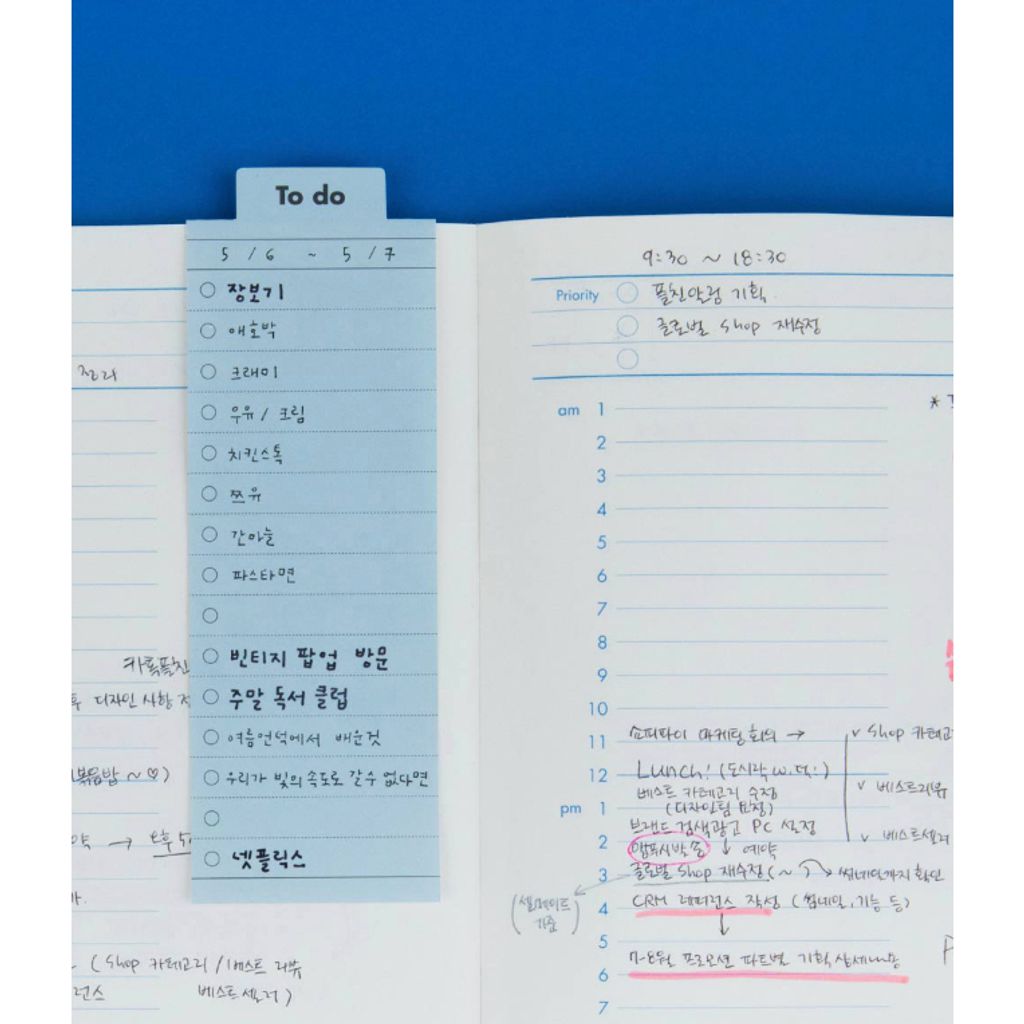 To do
5 / 6 ~ 5 / 7
장보기
애호박
크래미
우유 / 크림
치킨스톡
쯔유
간마늘
파스타면
빈티지 팝업 방문
주말 독서 클럽
여름언덕에서 배운것
우리가 빛의 속도로 갈 수 없다면
넷플릭스
정리
카톡플친
디자인 사항
볶음밥 ~ ♡)
→ 오후 5
( Shop 카테고리 / 베스트 리뷰
베스트 셀러 )
9:30 ~ 18:30
Priority 플친알림 기획
글로벌 Shop 재수정
am 1
2
3
4
5
6
7
8
9
10
11 쇼피파이 마케팅 회의 → v Shop 카테고
12 Lunch! (도시락 w.
베스트 카테고리 수정 v 베스트리뷰
pm 1 (디자인팀 요청)
브랜드 검색광고 PC 설정
2 앱푸시발송 ↓ 예약 v 베스트셀러
3 글로벌 Shop 재수정 ( ~ ) 썸네일까지 확인
(셀메이트 기준)
4 CRM 레퍼런스 작성 ( 썸네일, 기능 등 )
↓
5
6 7-8월 프로모션 파트별 기획 상세내용
7